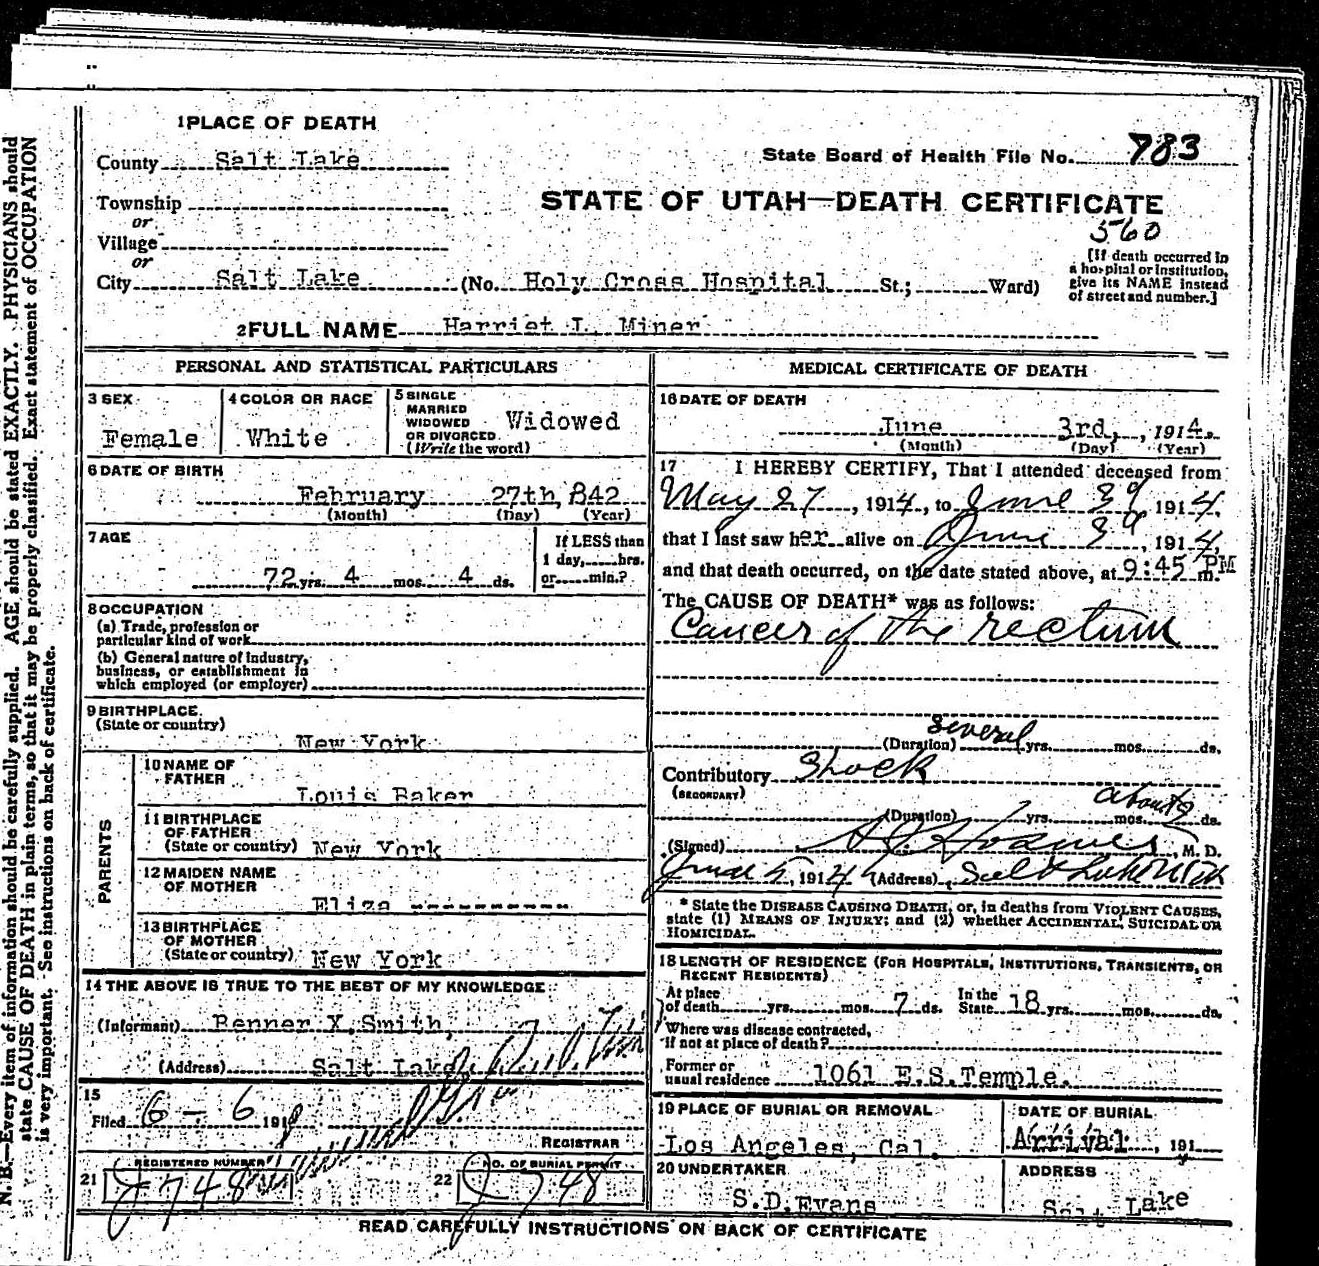 1 PLACE OF DEATH
County Salt Lake
State Board of Health File No. 783
Township
or
Village
or
STATE OF UTAH—DEATH CERTIFICATE
560
City Salt Lake (No. Holy Cross Hospital St.; Ward)
[If death occurred in
a hospital or institution,
give its NAME instead
of street and number.]
2 FULL NAME Harriet L. Miner
PERSONAL AND STATISTICAL PARTICULARS
3 SEX
Female
4 COLOR OR RACE
White
5 SINGLE
MARRIED
WIDOWED
OR DIVORCED
(Write the word)
Widowed
6 DATE OF BIRTH
February 27th, 842
(Month) (Day) (Year)
7 AGE
72 yrs. 4 mos. 4 ds.
If LESS than
1 day, hrs.
or min.?
8 OCCUPATION
(a) Trade, profession or
particular kind of work
(b) General nature of industry,
business, or establishment in
which employed (or employer)
9 BIRTHPLACE
(State or country)
New York
PARENTS
10 NAME OF
FATHER
Louis Baker
11 BIRTHPLACE
OF FATHER
(State or country) New York
12 MAIDEN NAME
OF MOTHER
Eliza ----------
13 BIRTHPLACE
OF MOTHER
(State or country) New York
14 THE ABOVE IS TRUE TO THE BEST OF MY KNOWLEDGE
(Informant) Benner X. Smith,
(Address) Salt Lake
15
Filed 6 - 6 191
REGISTRAR
21 REGISTERED NUMBER
J 748
22 NO. OF BURIAL PERMIT
J 748
MEDICAL CERTIFICATE OF DEATH
16 DATE OF DEATH
June 3rd, , 1914.
(Month) (Day) (Year)
17 I HEREBY CERTIFY, That I attended deceased from
May 27, 1914, to June 3d 1914,
that I last saw her alive on June 3d, 1914,
and that death occurred, on the date stated above, at 9:45 PM m.
The CAUSE OF DEATH* was as follows:
Cancer of the rectum
(Duration) several yrs. mos. ds.
Contributory Shock
(SECONDARY)
(Duration) yrs. mos. about 2 ds.
(Signed) M. D.
June 5, 1914 (Address) Salt Lake Utah
* State the DISEASE CAUSING DEATH, or, in deaths from VIOLENT CAUSES,
state (1) MEANS OF INJURY; and (2) whether ACCIDENTAL, SUICIDAL OR
HOMICIDAL.
18 LENGTH OF RESIDENCE (FOR HOSPITALS, INSTITUTIONS, TRANSIENTS, OR
RECENT RESIDENTS)
At place
of death yrs. mos. 7 ds. In the
State 18 yrs. mos. ds.
Where was disease contracted,
if not at place of death?
Former or
usual residence 1061 E. S. Temple.
19 PLACE OF BURIAL OR REMOVAL
Los Angeles, Cal.
DATE OF BURIAL
Arrival , 191
20 UNDERTAKER
S. D. Evans
ADDRESS
Salt Lake
READ CAREFULLY INSTRUCTIONS ON BACK OF CERTIFICATE
N. B.—Every item of information should be carefully supplied. AGE should be stated EXACTLY. PHYSICIANS should
state CAUSE OF DEATH in plain terms, so that it may be properly classified. Exact statement of OCCUPATION
is very important. See instructions on back of certificate.